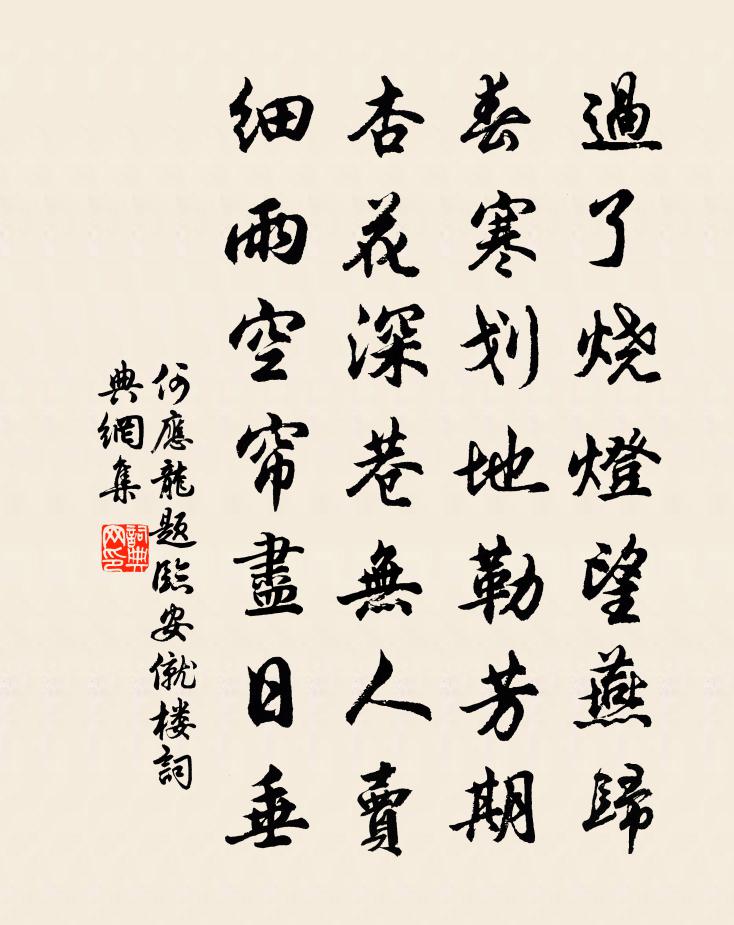 過了烧燈望燕歸
春寒刬地勒芳期
杏花深巷無人賣
細雨空帘盡日垂
何應龍題臨安僦楼詞
典網集
詞典
网印